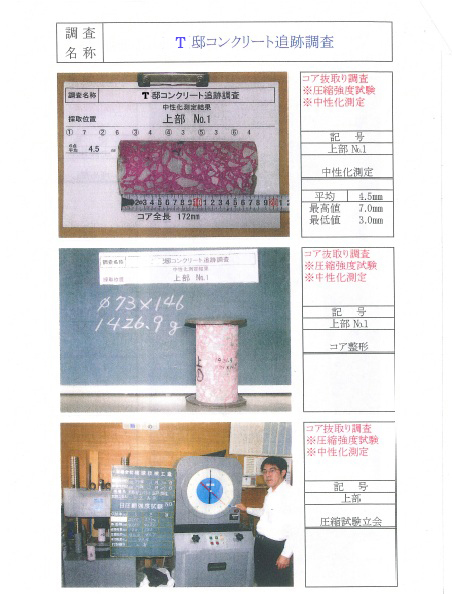 調査
名称
T 邸コンクリート追跡調査
調査名称
T 邸コンクリート追跡調査
中性化測定結果
採取位置
上部 No.1
① 7 ② 6 ③ 4 ④ 3 ⑤ 3 ⑥ 4
平均 4.5 mm
コア全長 172mm
コア抜取り調査
※圧縮強度試験
※中性化測定
記 号
上部No.1
中性化測定
平均 4.5mm
最高値 7.0mm
最低値 3.0mm
調査名称
邸コンクリート追跡調査
中性化測定結果
採取位置
上部 No.1
φ73×146
1426.9g
上
①
コア抜取り調査
※圧縮強度試験
※中性化測定
記 号
上部No.1
コア整形
コア抜取り調査
※圧縮強度試験
※中性化測定
記 号
上部
圧縮試験立会